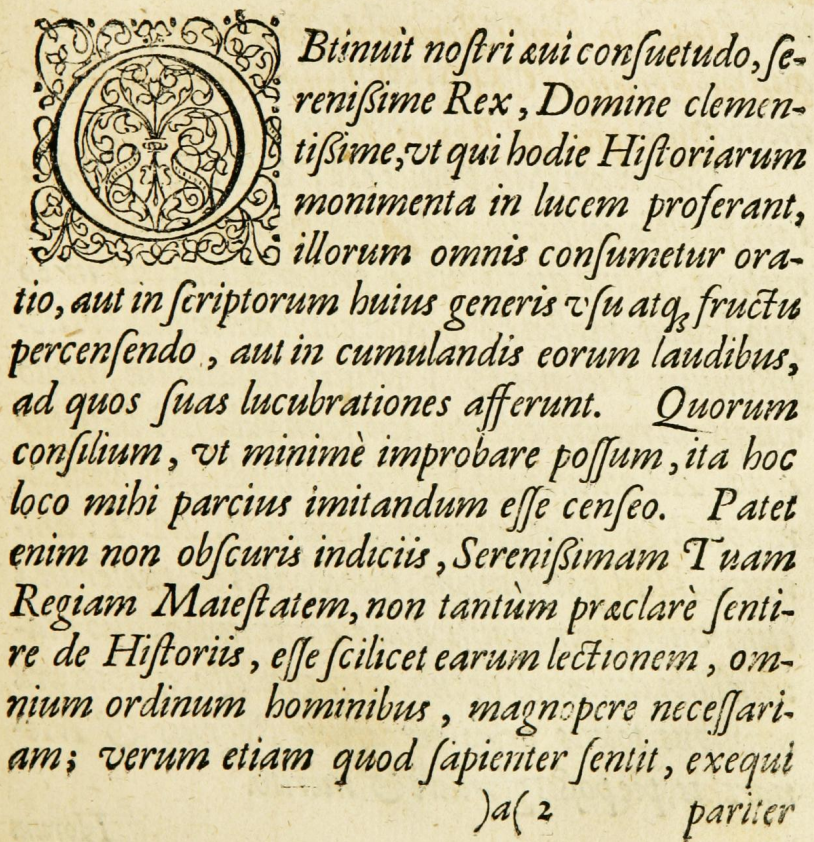 OBtinuit noſtri æui conſuetudo, ſe-
renißime Rex, Domine clemen-
tißime, vt qui hodie Hiſtoriarum
monimenta in lucem proferant,
illorum omnis conſumetur ora-
tio, aut in ſcriptorum huius generis vſu atq; fructu
percenſendo, aut in cumulandis eorum laudibus,
ad quos ſuas lucubrationes afferunt. Quorum
conſilium, vt minimè improbare poſſum, ita hoc
loco mihi parcius imitandum eſſe cenſeo. Patet
enim non obſcuris indiciis, Serenißimam Tuam
Regiam Maieſtatem, non tantùm præclarè ſenti-
re de Hiſtoriis, eſſe ſcilicet earum lectionem, om-
nium ordinum hominibus, magnopere neceſſari-
am; verum etiam quod ſapienter ſentit, exequi
)a( 2 pariter